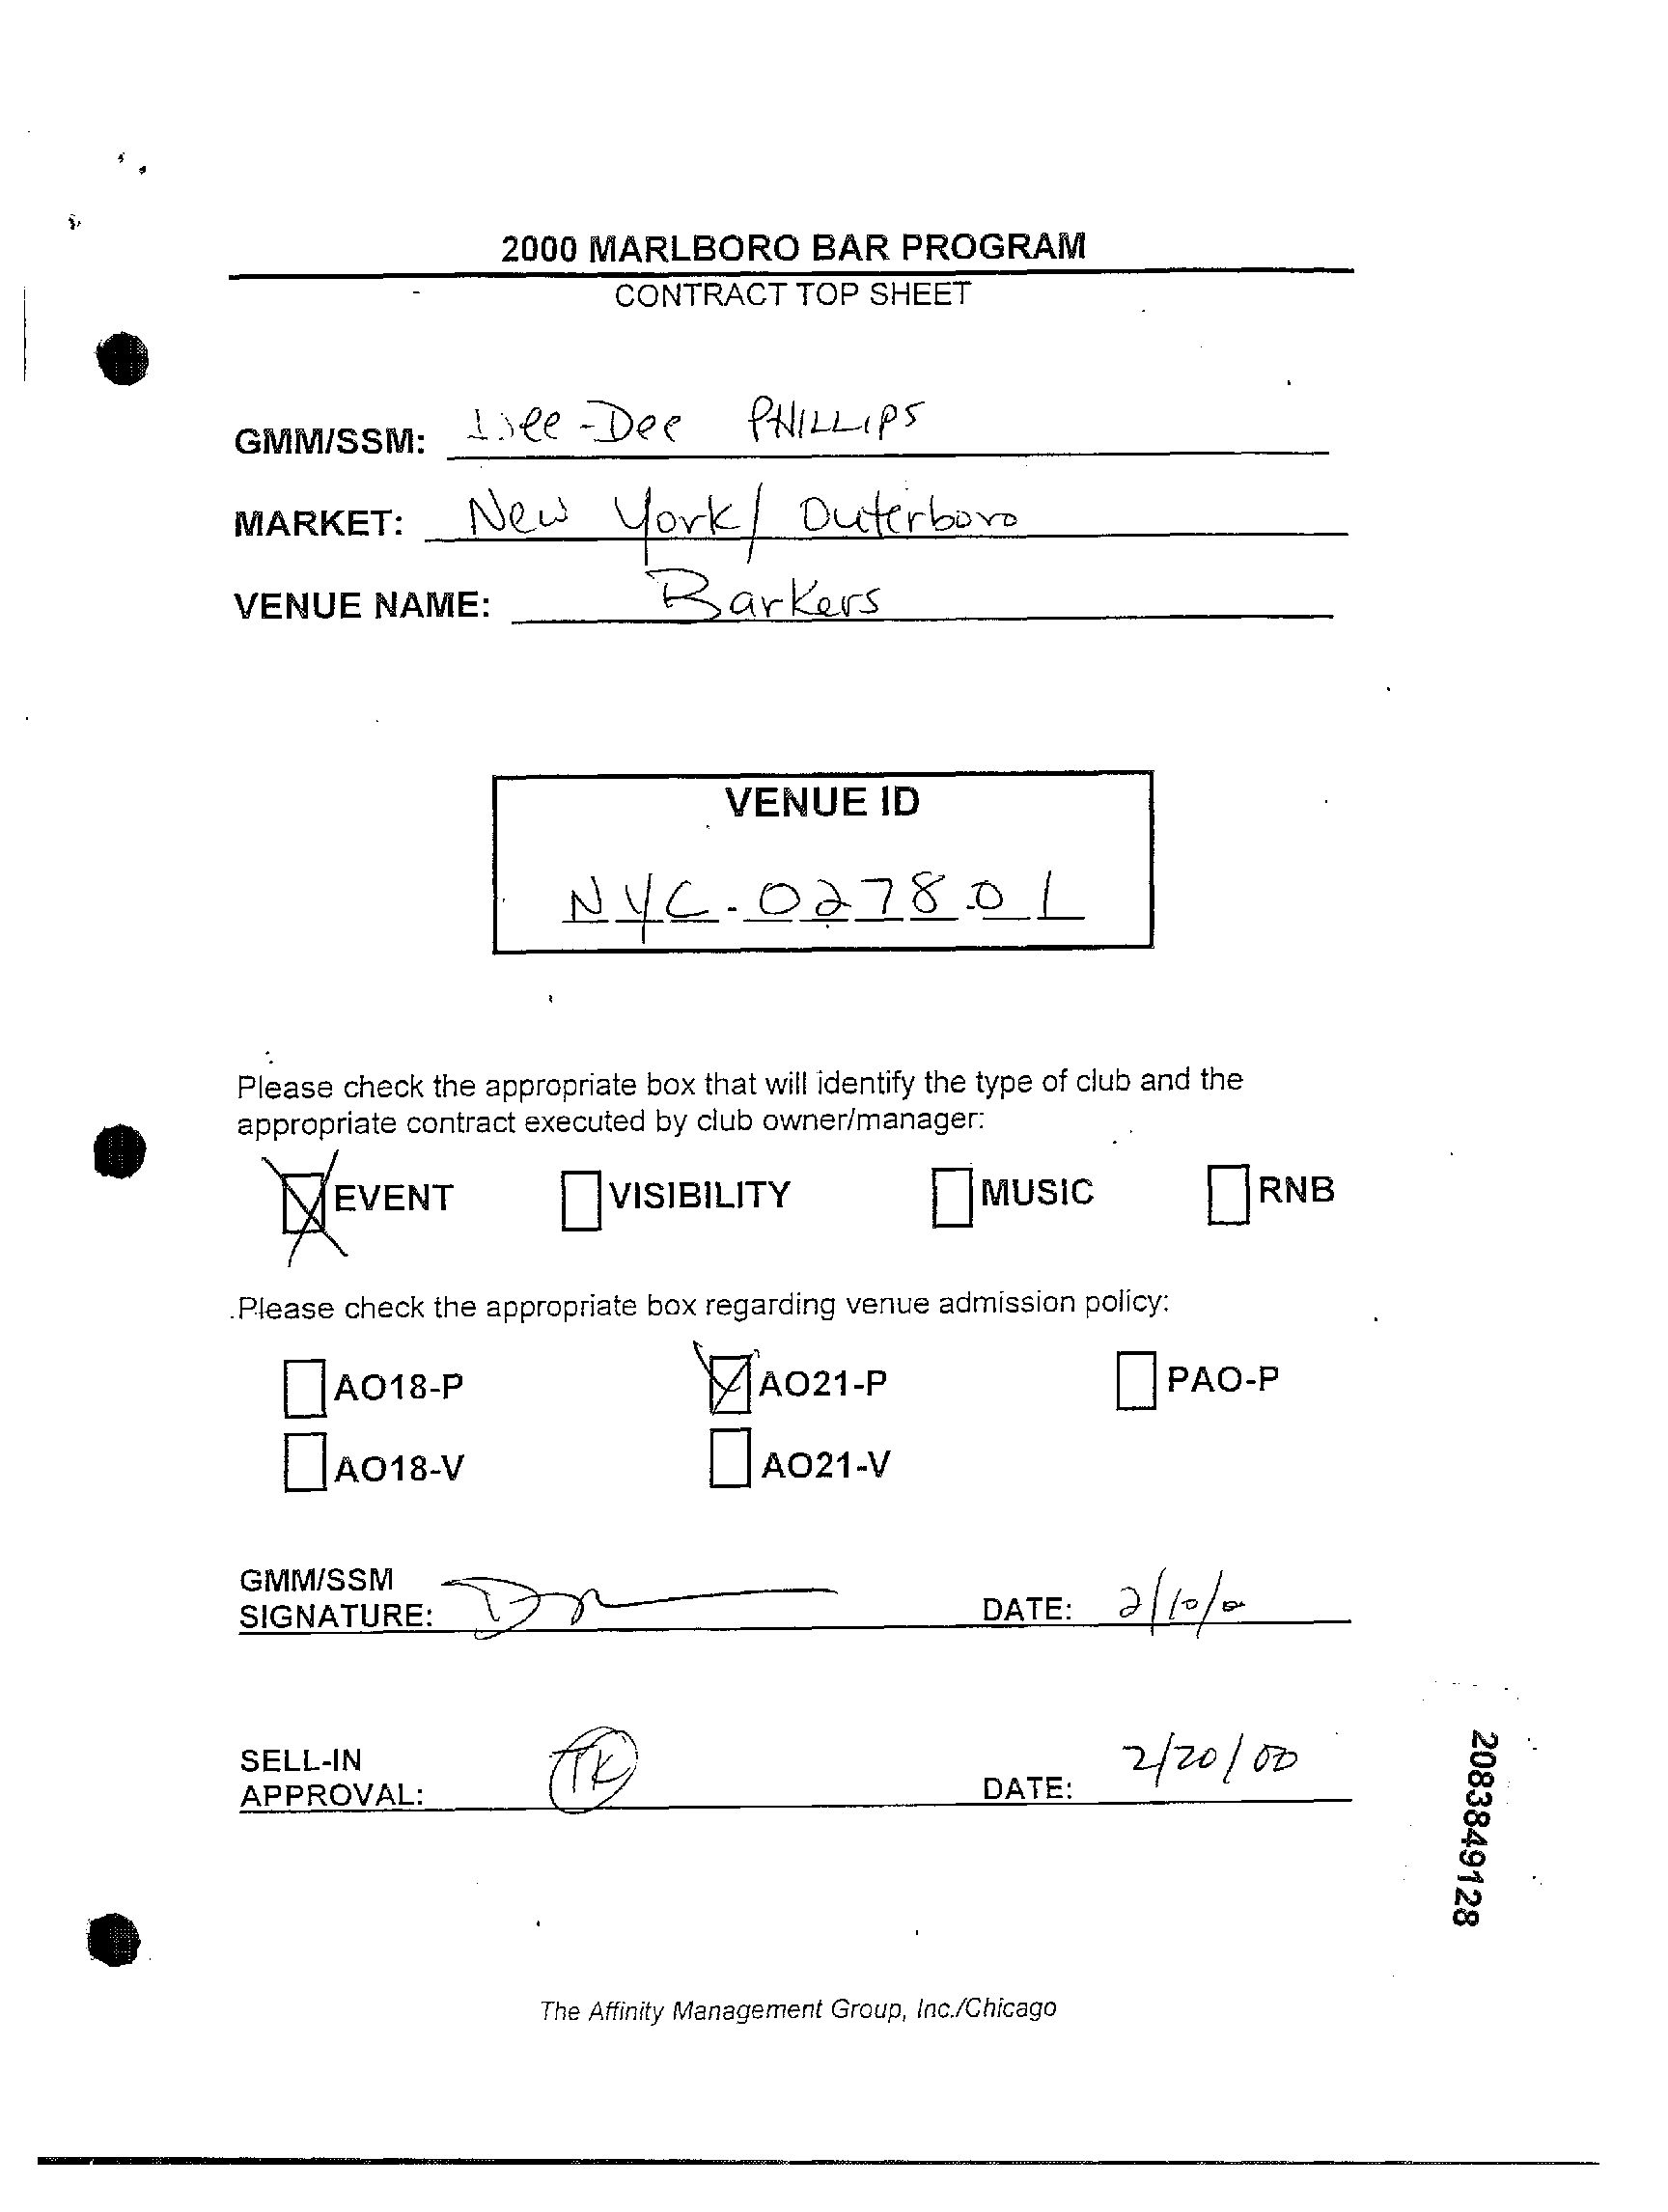 2000 MARLBORO BAR PROGRAM
CONTRACT TOP SHEET
GMM/SSM: Dee-Dee PHILLIPS
MARKET: New York/ Outerboro
VENUE NAME: Barkers
VENUE ID
NYC-027801
Please check the appropriate box that will identify the type of club and the
appropriate contract executed by club owner/manager:
EVENT VISIBILITY MUSIC RNB
Please check the appropriate box regarding venue admission policy:
AO18-P AO21-P PAO-P
AO18-V AO21-V
GMM/SSM
SIGNATURE: DATE: 2/10/
SELL-IN
APPROVAL: TK DATE: 2/20/00
2083849128
The Affinity Management Group, Inc./Chicago